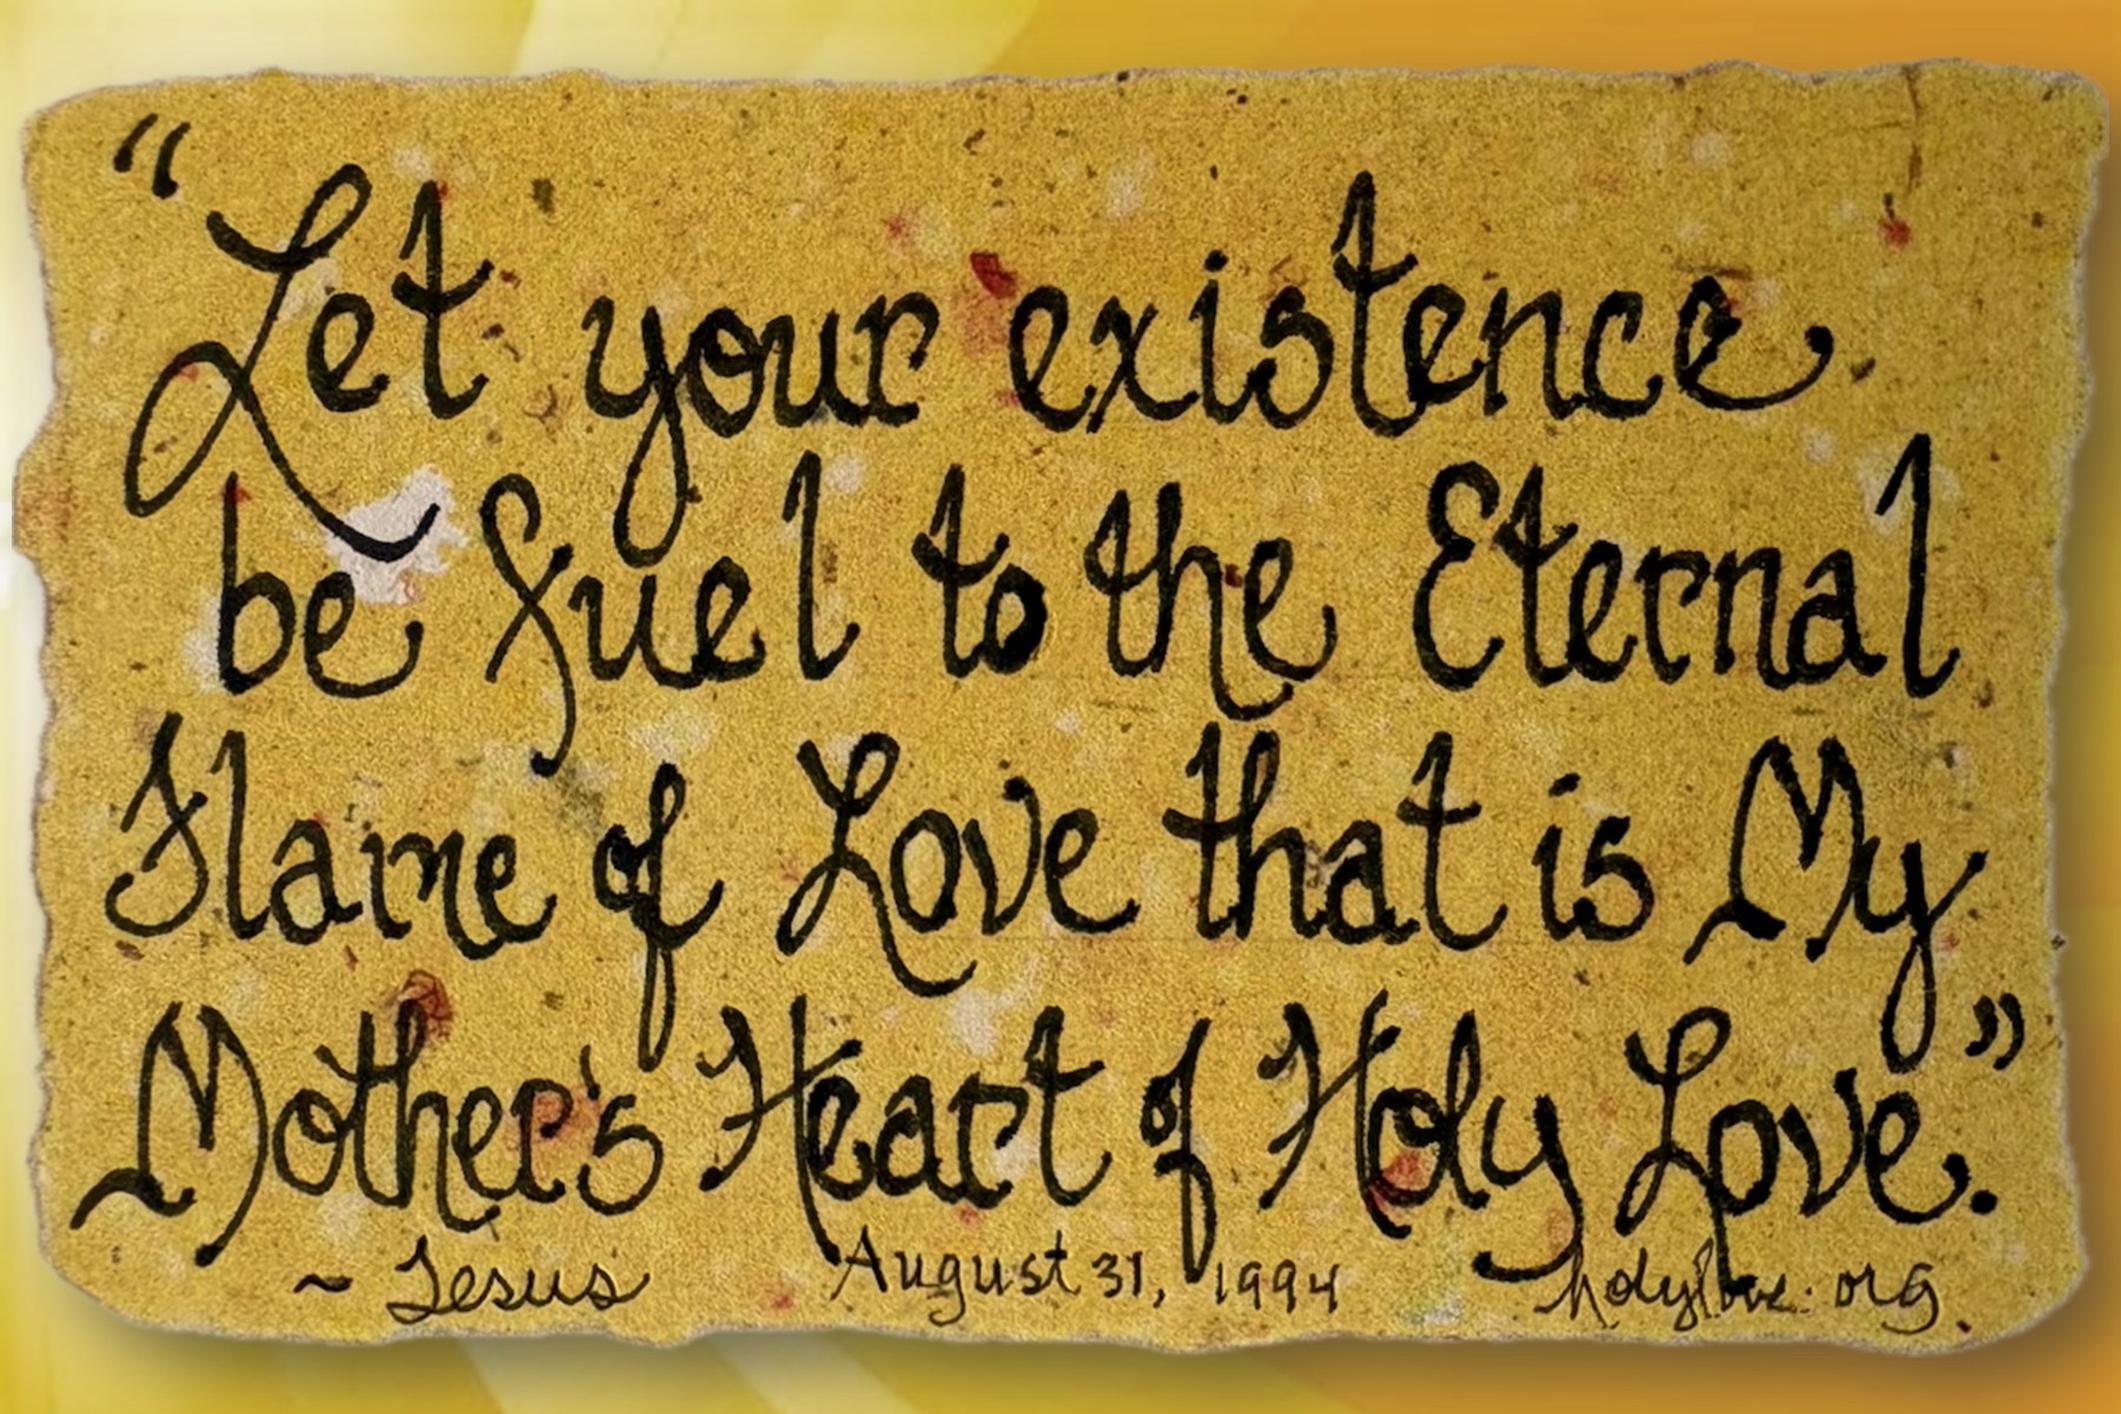 “Let your existence
be fuel to the Eternal
Flame of Love that is My
Mother's Heart of Holy Love.”
~ Jesus August 31, 1994 holylove.org